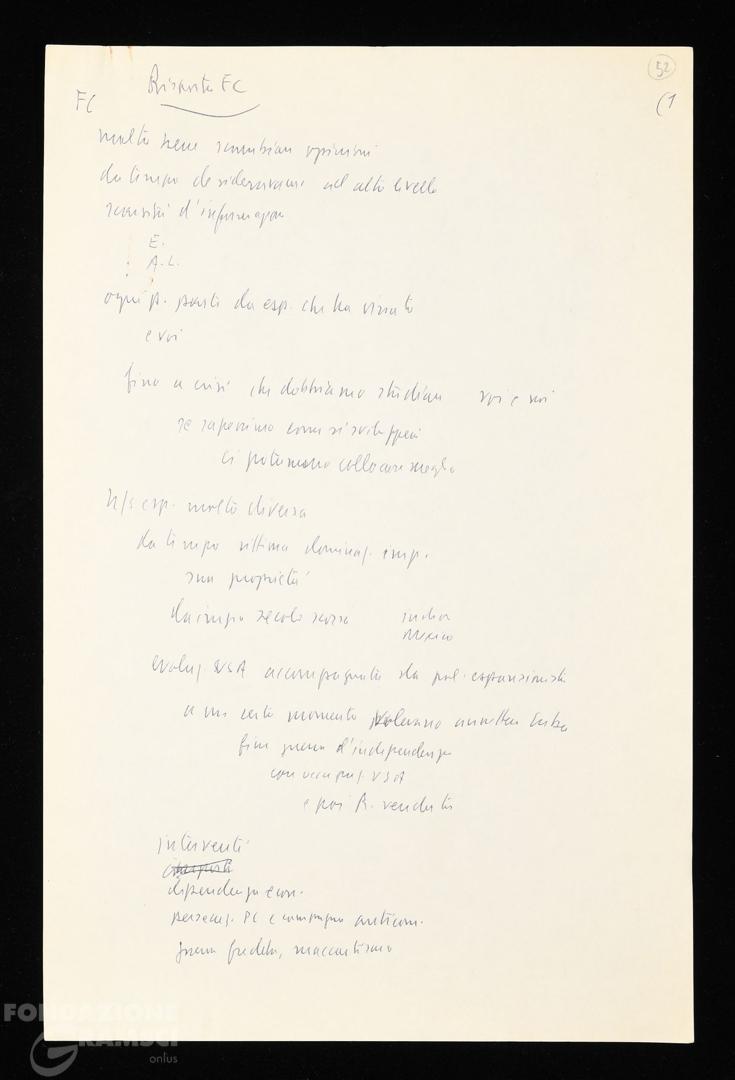 52
Risposta FC
FC
(1
molto bene scambiare opinioni
da tempo desideravamo ad alto livello
scarsità d'informazione
E.
A.L.
ogni p. parte da esp. che ha vissuto
e voi
fino a crisi che dobbiamo studiare voi e noi
se sapessimo come si svilupperà
ci potremmo collocare meglio
n/s esp. molto diversa
da tempo vittima dominaz. imp.
sua proprietà
da inizio secolo scorso indios
Mexico
evoluz. USA accompagnata da pol. espansionista
a un certo momento volevano annettere Cuba
fine guerra d'indipendenza
con occupaz. USA
e poi R. venduta
interventi
dipendenza econ.
persecuz. PC e campagna anticom.
guerra fredda, maccartismo
FONDAZIONE
GRAMSCI
onlus